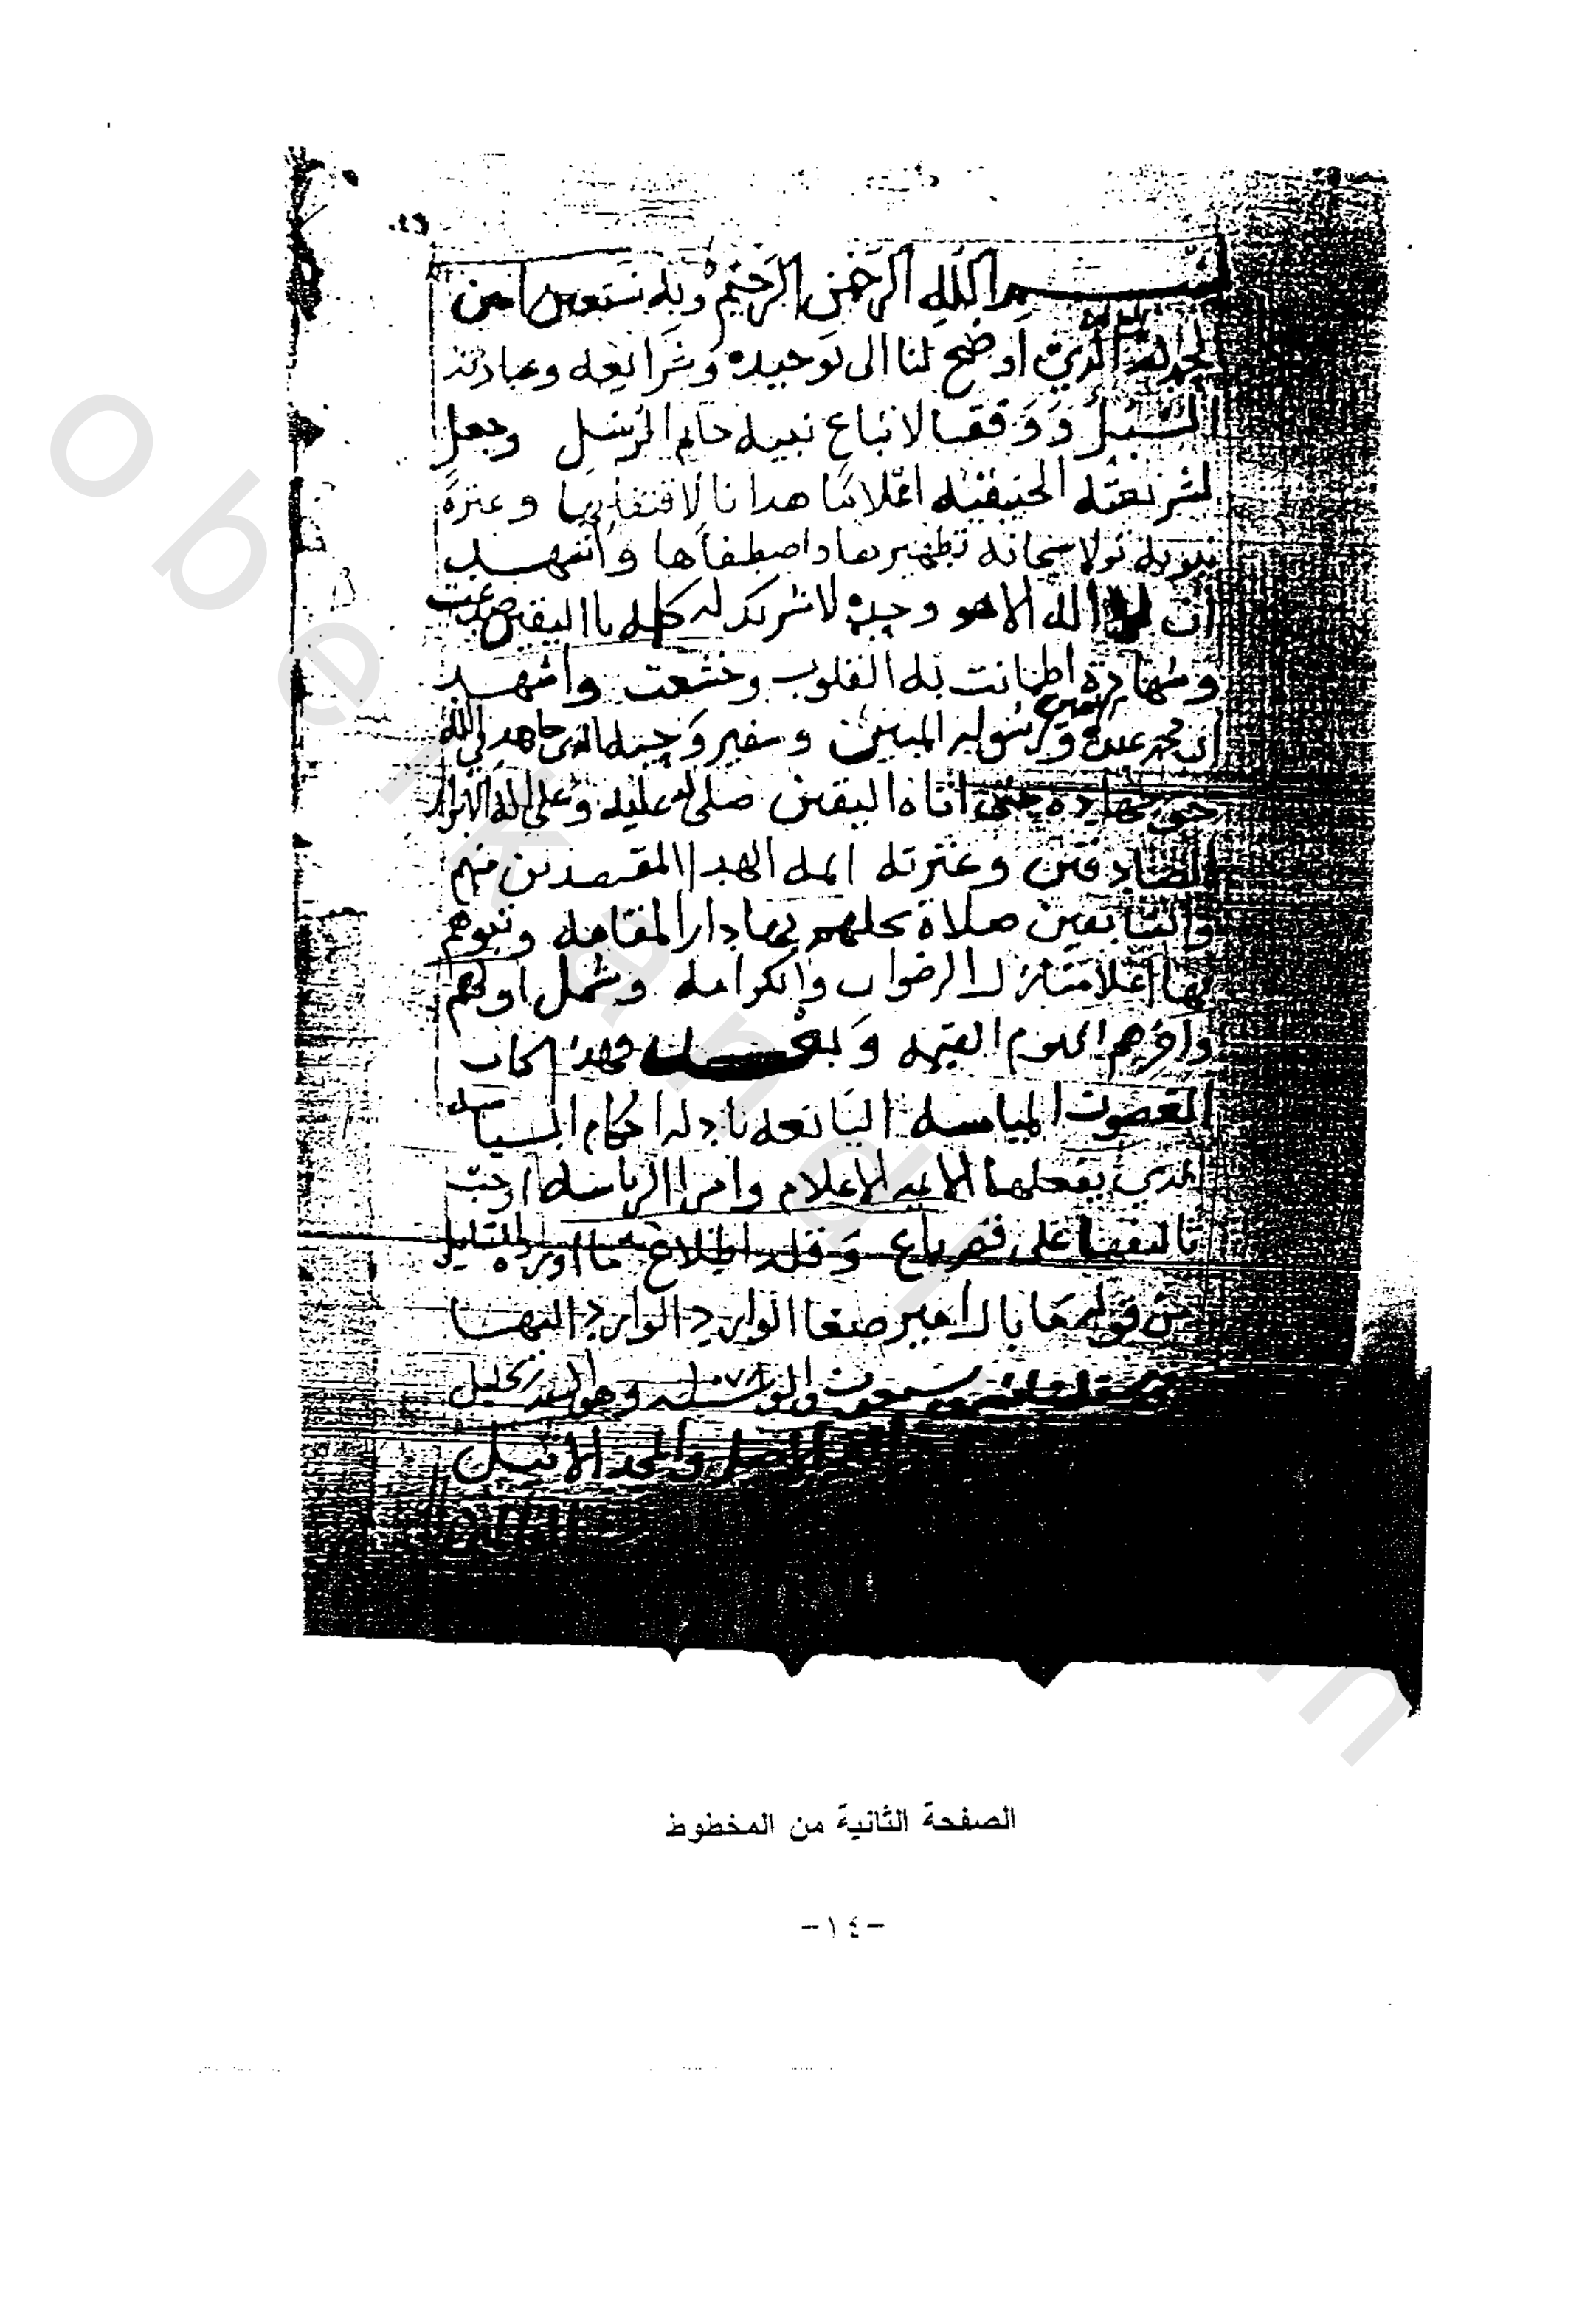 بسم الله الرحمن الرحيم وبه نستعين امين
الحمد لله الذي اوضح لنا الى توحيده وشرائعه وعبادته
السبل ووفقنا لاتباع نبيه خاتم الرسل وجعل
لشريعته الحنيفيه اعلاما هدانا لاقتفاريها وعترة
نبويه تولا سبحانه تطهيرها واصطفاها واشهد
ان لا اله الا هو وحده لا شريك له كلمه باليقين صدعت
وشهادة اطمانت به القلوب وخشعت واشهد
ان محمد عبده ورسوله المبين وسفير وحيه الذي جاهد في الله
حق جهاده حتى اتاه اليقين صلى الله عليه وعلى اله الابرار
الصادقين وعترته ايمه الهدا المقتصدين منهم
والسابقين صلاة يحلهم بها دار المقامه وتبوهم
بها اعلا منازل الرضوان والكرامه وشمل اولهم
واخرهم اليوم القيمه وبعد فهذا الكتاب
الغصون المياسه اليانعه بادله احكام السياسه
الذي يفعلها الايمه الاعلام وامرا الرياسه اوجب
تاليفها على قصر باع وقله اطلاع ما اورده السايل
من قوله ما بال امير صنعا الوارد الوارد اليها
والوسيله وهو السيد الجليل
والمجد الاثيل
الصفحة الثانية من المخطوط
-١٤-
obeikandl.com